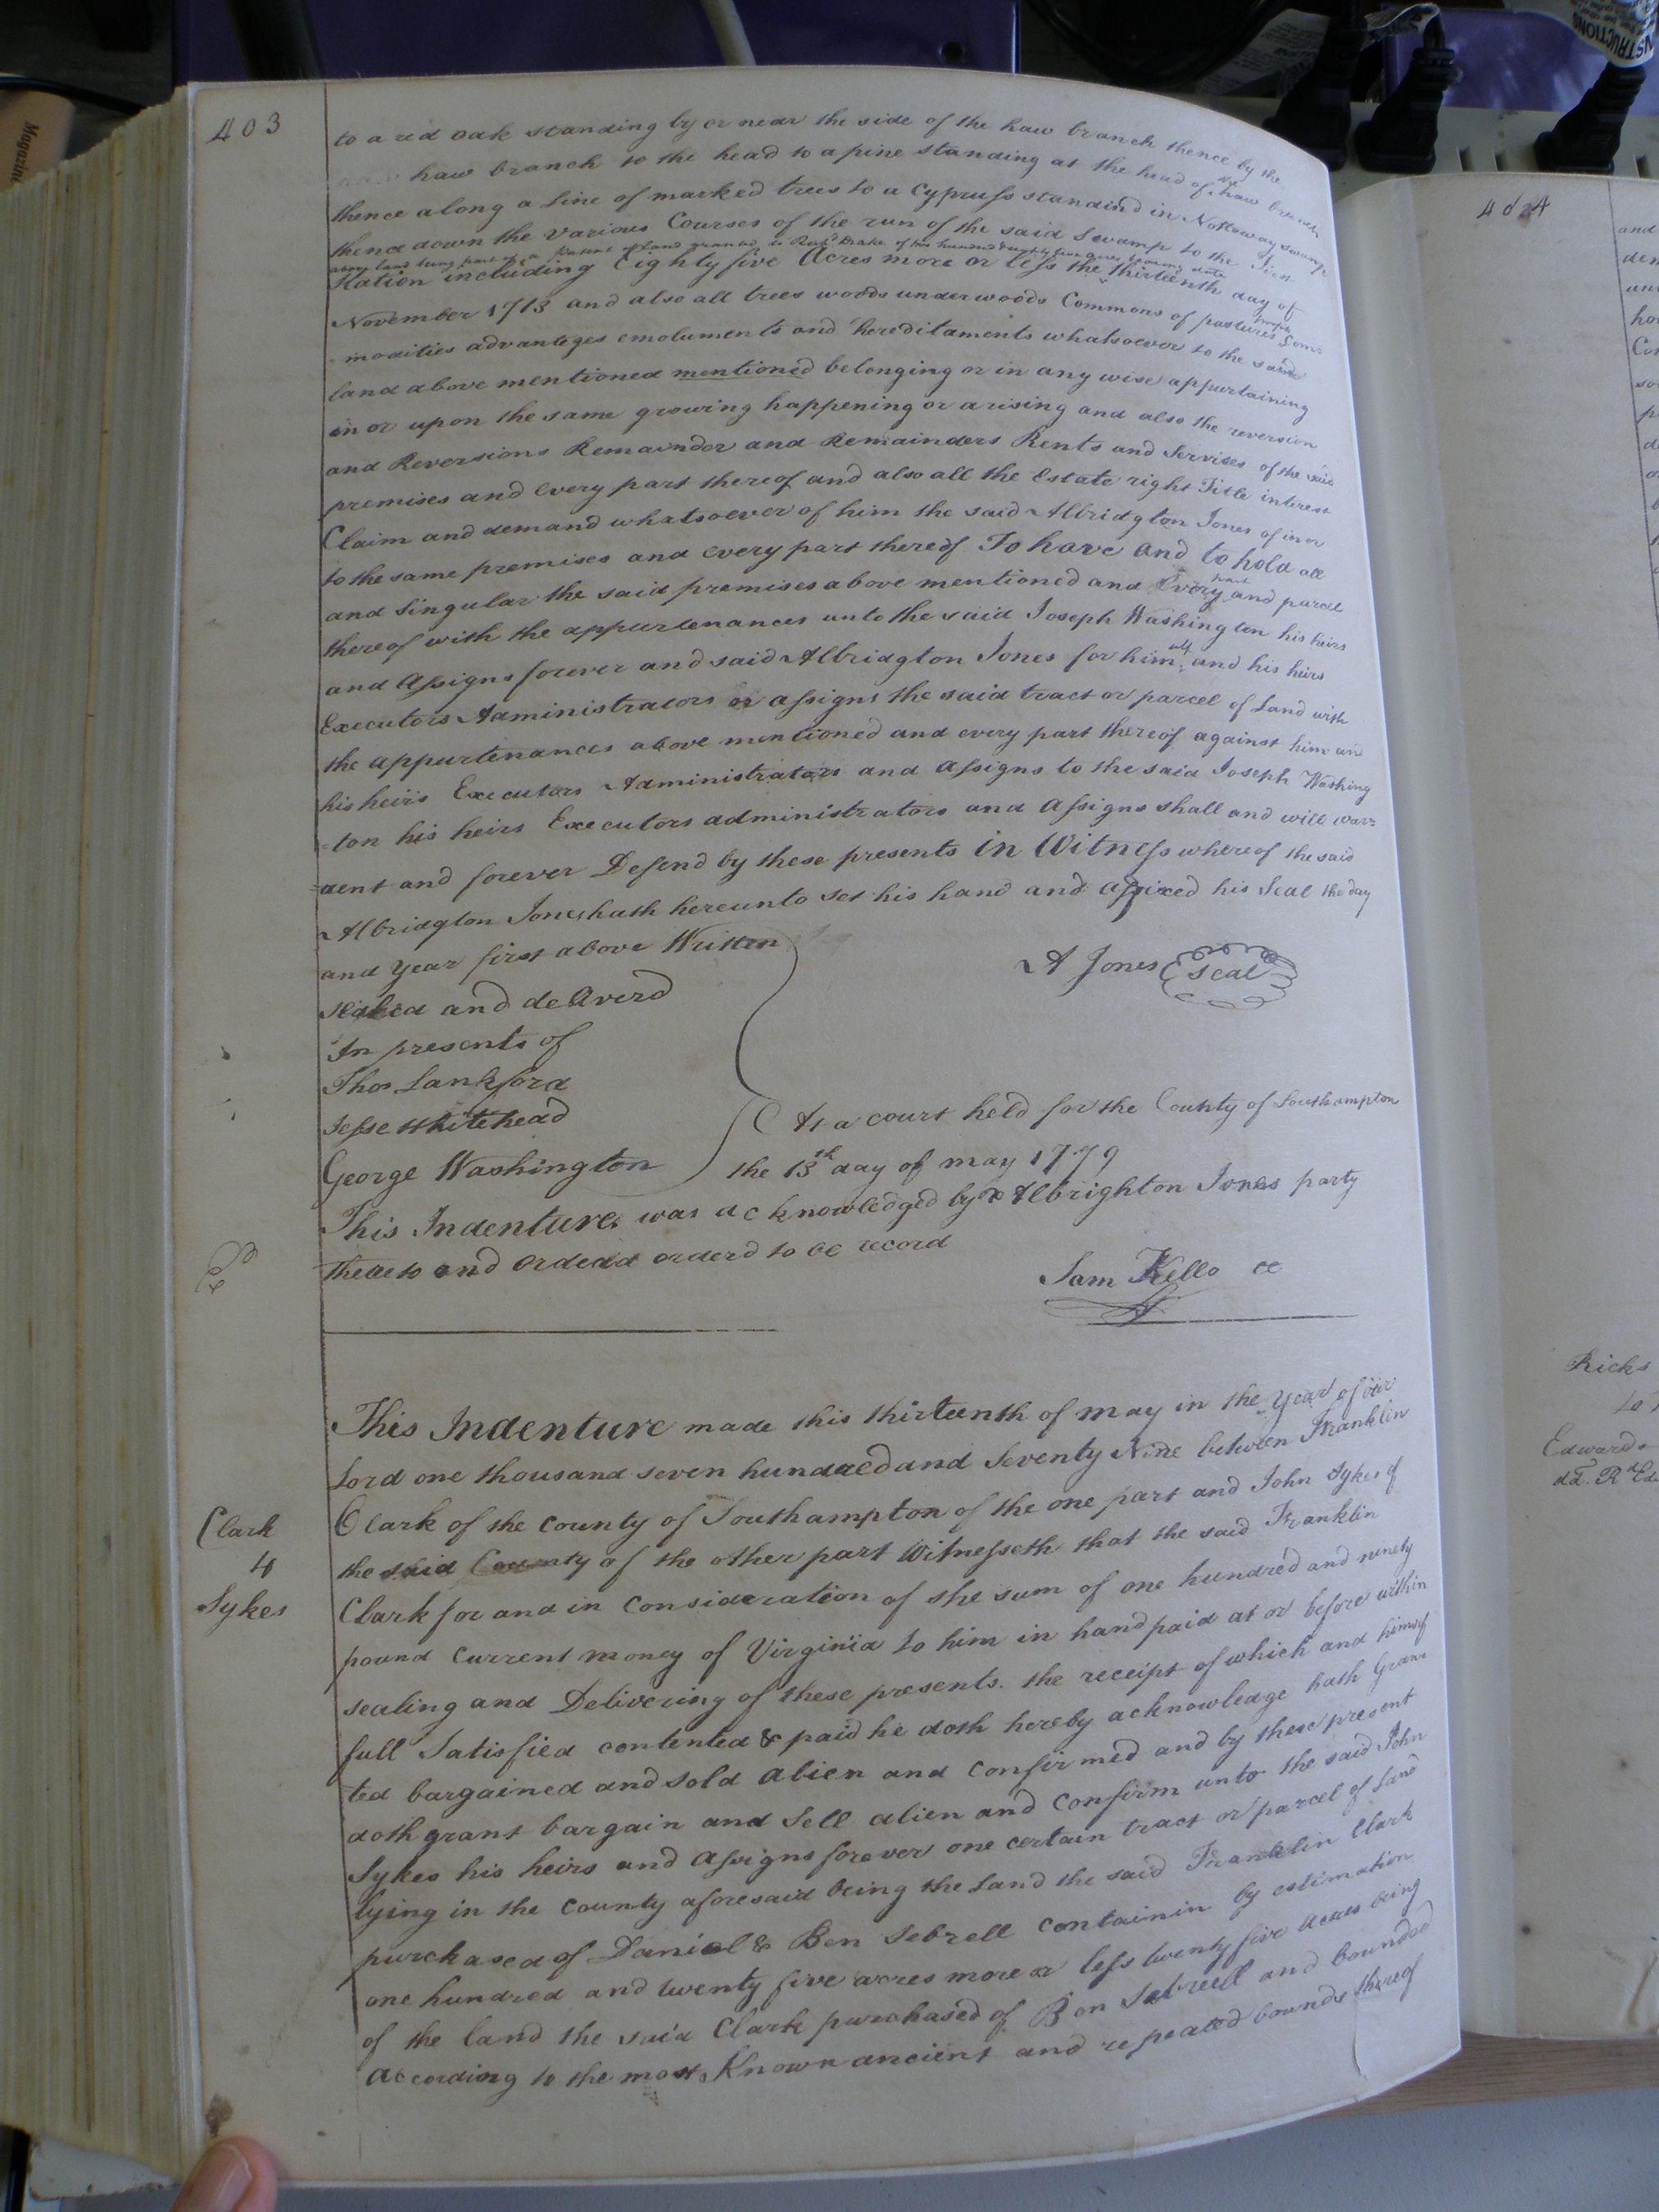 403
to a red oak standing by or near the side of the haw branch thence by the
haw branch to the head to a pine standing at the head of the haw branch
thence along a line of marked trees to a Cypruss standind in Nottoway swamp
thence down the various Courses of the run of the said Swamp to the first
above land being part of a Patent of Land granted to Richd Drake of two hundred eighty two acres bearing date
Station including Eighty five Acres more or less the thirteenth day of
November 1713 and also all trees woods underwoods Commons of pastures Com
modities advantages emoluments and hereditaments whatsoever to the said
land above mentioned mentioned belonging or in any wise appurtaining
in or upon the same growing happening or arising and also the reversion
and Reversions Remainder and Remainders Rents and Services of the said
premises and every part thereof and also all the Estate right Title interest
Claim and demand whatsoever of him the said Albridgton Jones of in or
to the same premises and every part thereof To have and to hold all
and Singular the said premises above mentioned and Every part and parcel
thereof with the appurtenances unto the said Joseph Washington his heirs
and Assigns forever and said Albridgton Jones for him self and his heirs
Executors Administrators or assigns the said tract or parcel of Land with
the appurtenances above mentioned and every part thereof against him and
his heirs Executors Administrators and Assigns to the said Joseph Washing
=ton his heirs Executors administrators and Assigns shall and will war=
=rent and forever Defend by these presents in Witness whereof the said
Albridgton Jones hath hereunto set his hand and affixed his Seal the day
and Year first above Written
A Jones seal
sealed and deliverd
In presents of
Thos Lankford
Jesse Whitehead
At a court held for the County of Southampton
George Washington
the 13th day of may 1779
This Indenture was acknowledged by Albrighton Jones party
thereto and Orderd orderd to be record
Sam Kello CC
This Indenture made this thirteenth of may in the Year of our
Lord one thousand seven hundred and Seventy Nine between Franklin
Clark of the county of Southampton of the one part and John Sykes of
Clark
to
Sykes
the said County of the other part Witnesseth that the said Franklin
Clark for and in Consideration of the sum of one hundred and ninety
pound Current money of Virginia to him in hand paid at or before within
sealing and Delivering of these presents. the receipt of which and himself
full Satisfied contented & paid he doth hereby acknowledge hath Gran
ted bargained and sold alien and Confirmed and by these present
doth grant bargain and Sell alien and Confirm unto the said John
Sykes his heirs and Assigns forever one certain tract or parcel of Land
lying in the County aforesaid being the Land the said Franklin Clark
purchased of Daniel & Ben Sebrell containin by estimation
one hundred and twenty five acres more or less twenty five acres being
of the land the said Clark purchased of Ben Sebrell and bounded
according to the most Known ancient and repeated bounds thereof
404
and
Ricks
to
Edwards